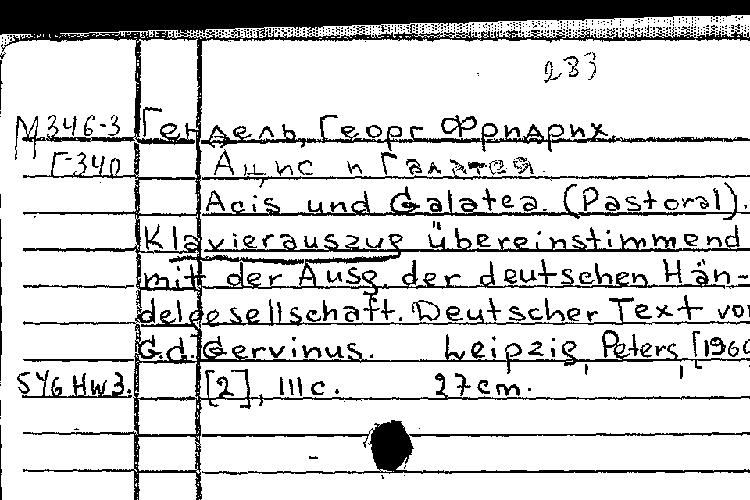 283
М346-3 Гендель, Георг Фридрих.
Г-340 Ацис и Галатея.
Acis und Galatea. (Pastoral).
Klavierauszug übereinstimmend
mit der Ausg. der deutschen Hän-
delgesellschaft. Deutscher Text von
G.d. Gervinus. Leipzig, Peters, [1960
546 Нш3. [2], 111 c. 27 cm.